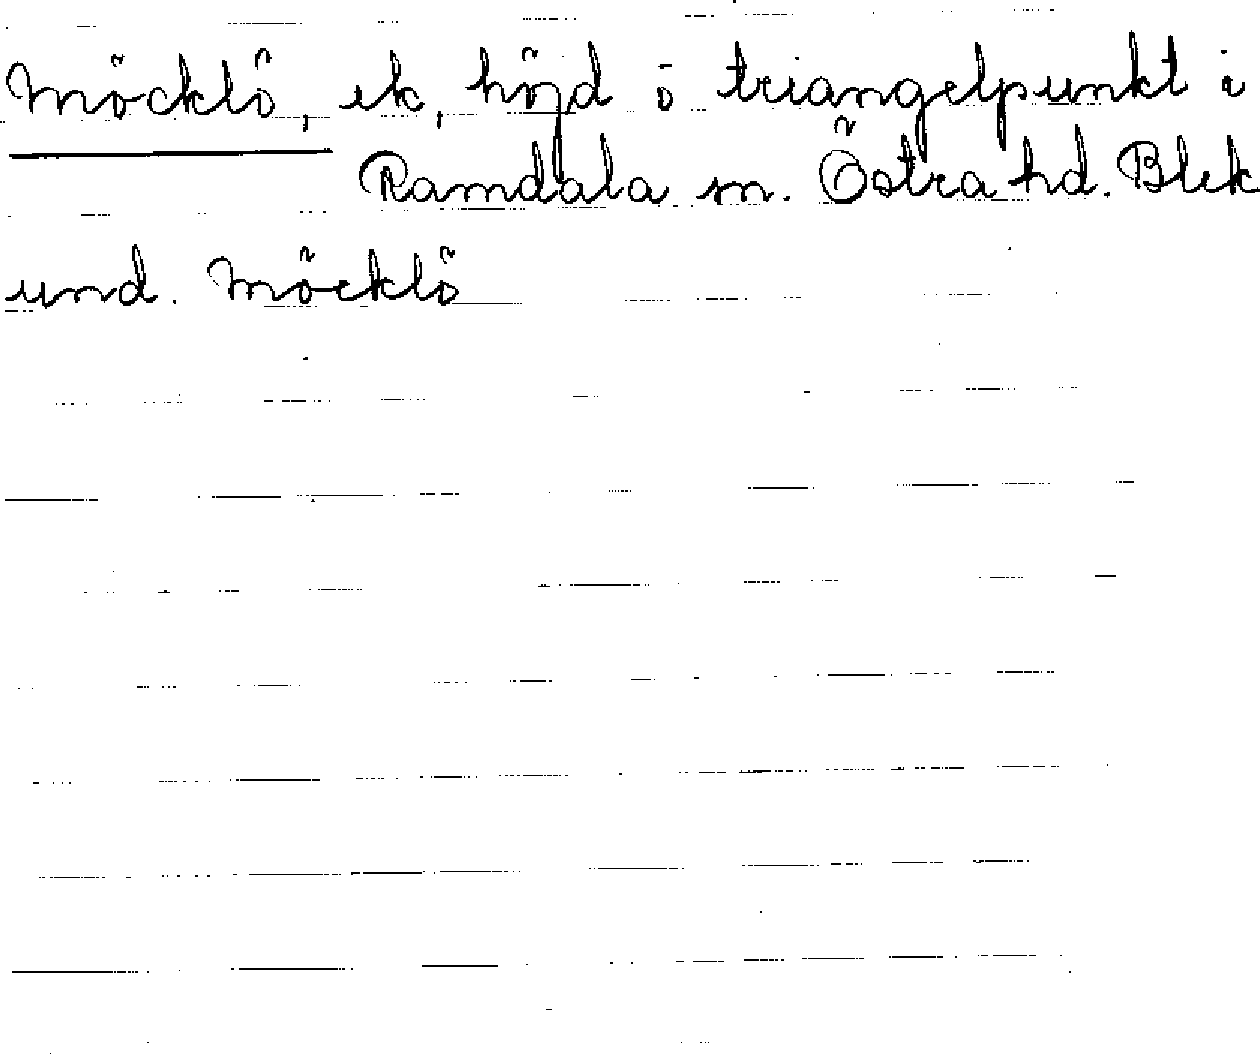 Möcklö, ek, höjd o triangelpunkt i
Ramdala sn. Östra hd. Blek
und. Möcklö